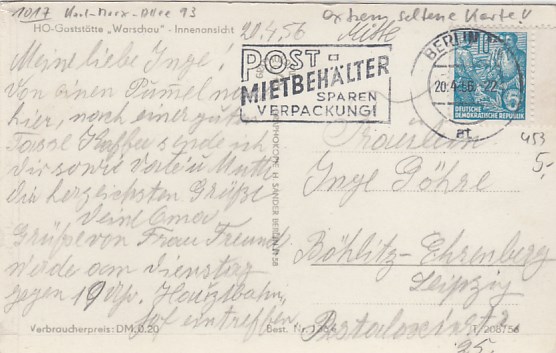 1017 Karl-Marx-Allee 93
extrem seltene Karte!
HO-Gaststätte „Warschau" - Innenansicht
20.4.56
Mitte
Meine liebe Inge!
Von einem Bummel na
hier, nach einer guten
Tasse Kaffee sende ich
dir sowie Vater u. Mutti
die herzlichsten Grüße
Deine Oma
Grüße von Frau Freund
werde am Dienstag
gegen 19 Uhr, Hauptbahn
hof eintreffen
Verbraucherpreis: DM 0.20
POST-
MIETBEHÄLTER
SPAREN
VERPACKUNG!
BERLIN
20.4.56
at
10
6
DEUTSCHE
DEMOKRATISCHE REPUBLIK
453
5,-
Fräulein
Inge Göhre
Böhlitz-Ehrenberg
Leipzig
Pestalozzistr.
25.
Best. Nr.
T/208/56